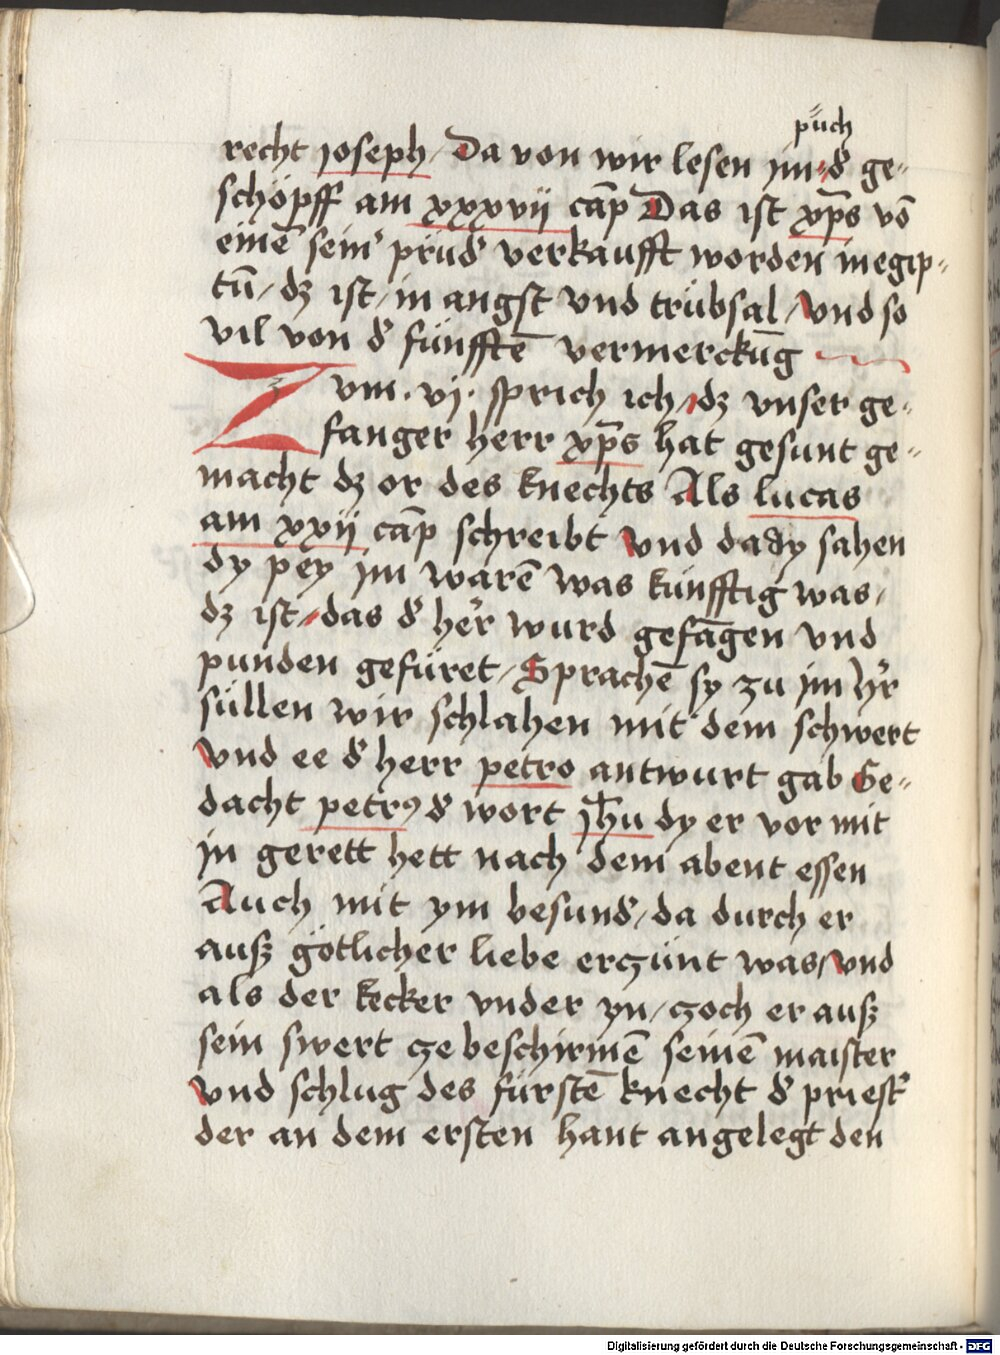 püch
recht ioseph / Da von wir lesen jm đ ge⸗
schöpff am xxxvij cap̄ Das ist xp̄s vō
einē seinˀ prüđ verkaufft worden in egip⸗
tū / dʒ ist / in angst vnd trübsal / Vnd so
vil von đ fünfftē vermerckūg
Zvm · vj · sprich ich / dʒ vnser ge⸗
fanger herr xp̄s hat gesunt ge⸗
macht dʒ or des knechts Als lucas
am xxij cap̄ schreibt Vnd da dy sahen
dy pey jm warē was künfftig was /
dʒ ist / das đ heˀr wurd gefāgen vnd
punden gefüret / Sprachē sy zu jm hˀr
süllen wir schlahen mit dem schwert
Vnd ee đ herr petro antwurt gab Ge⸗
dacht petrꝰ đ wort jħu dy er vor mit
jn gerett hett nach dem abent essen
Auch mit ym besunđ / da durch er
auß götlicher liebe erczünt was / Vnd
als der kecker vnder yn / czoch er auß
sein swert cze beschirmē seinē maister
Vnd schlug des fürstē knecht đ priestˀ
der an dem ersten hant angelegt den
Digitalisierung gefördert durch die Deutsche Forschungsgemeinschaft - DFG